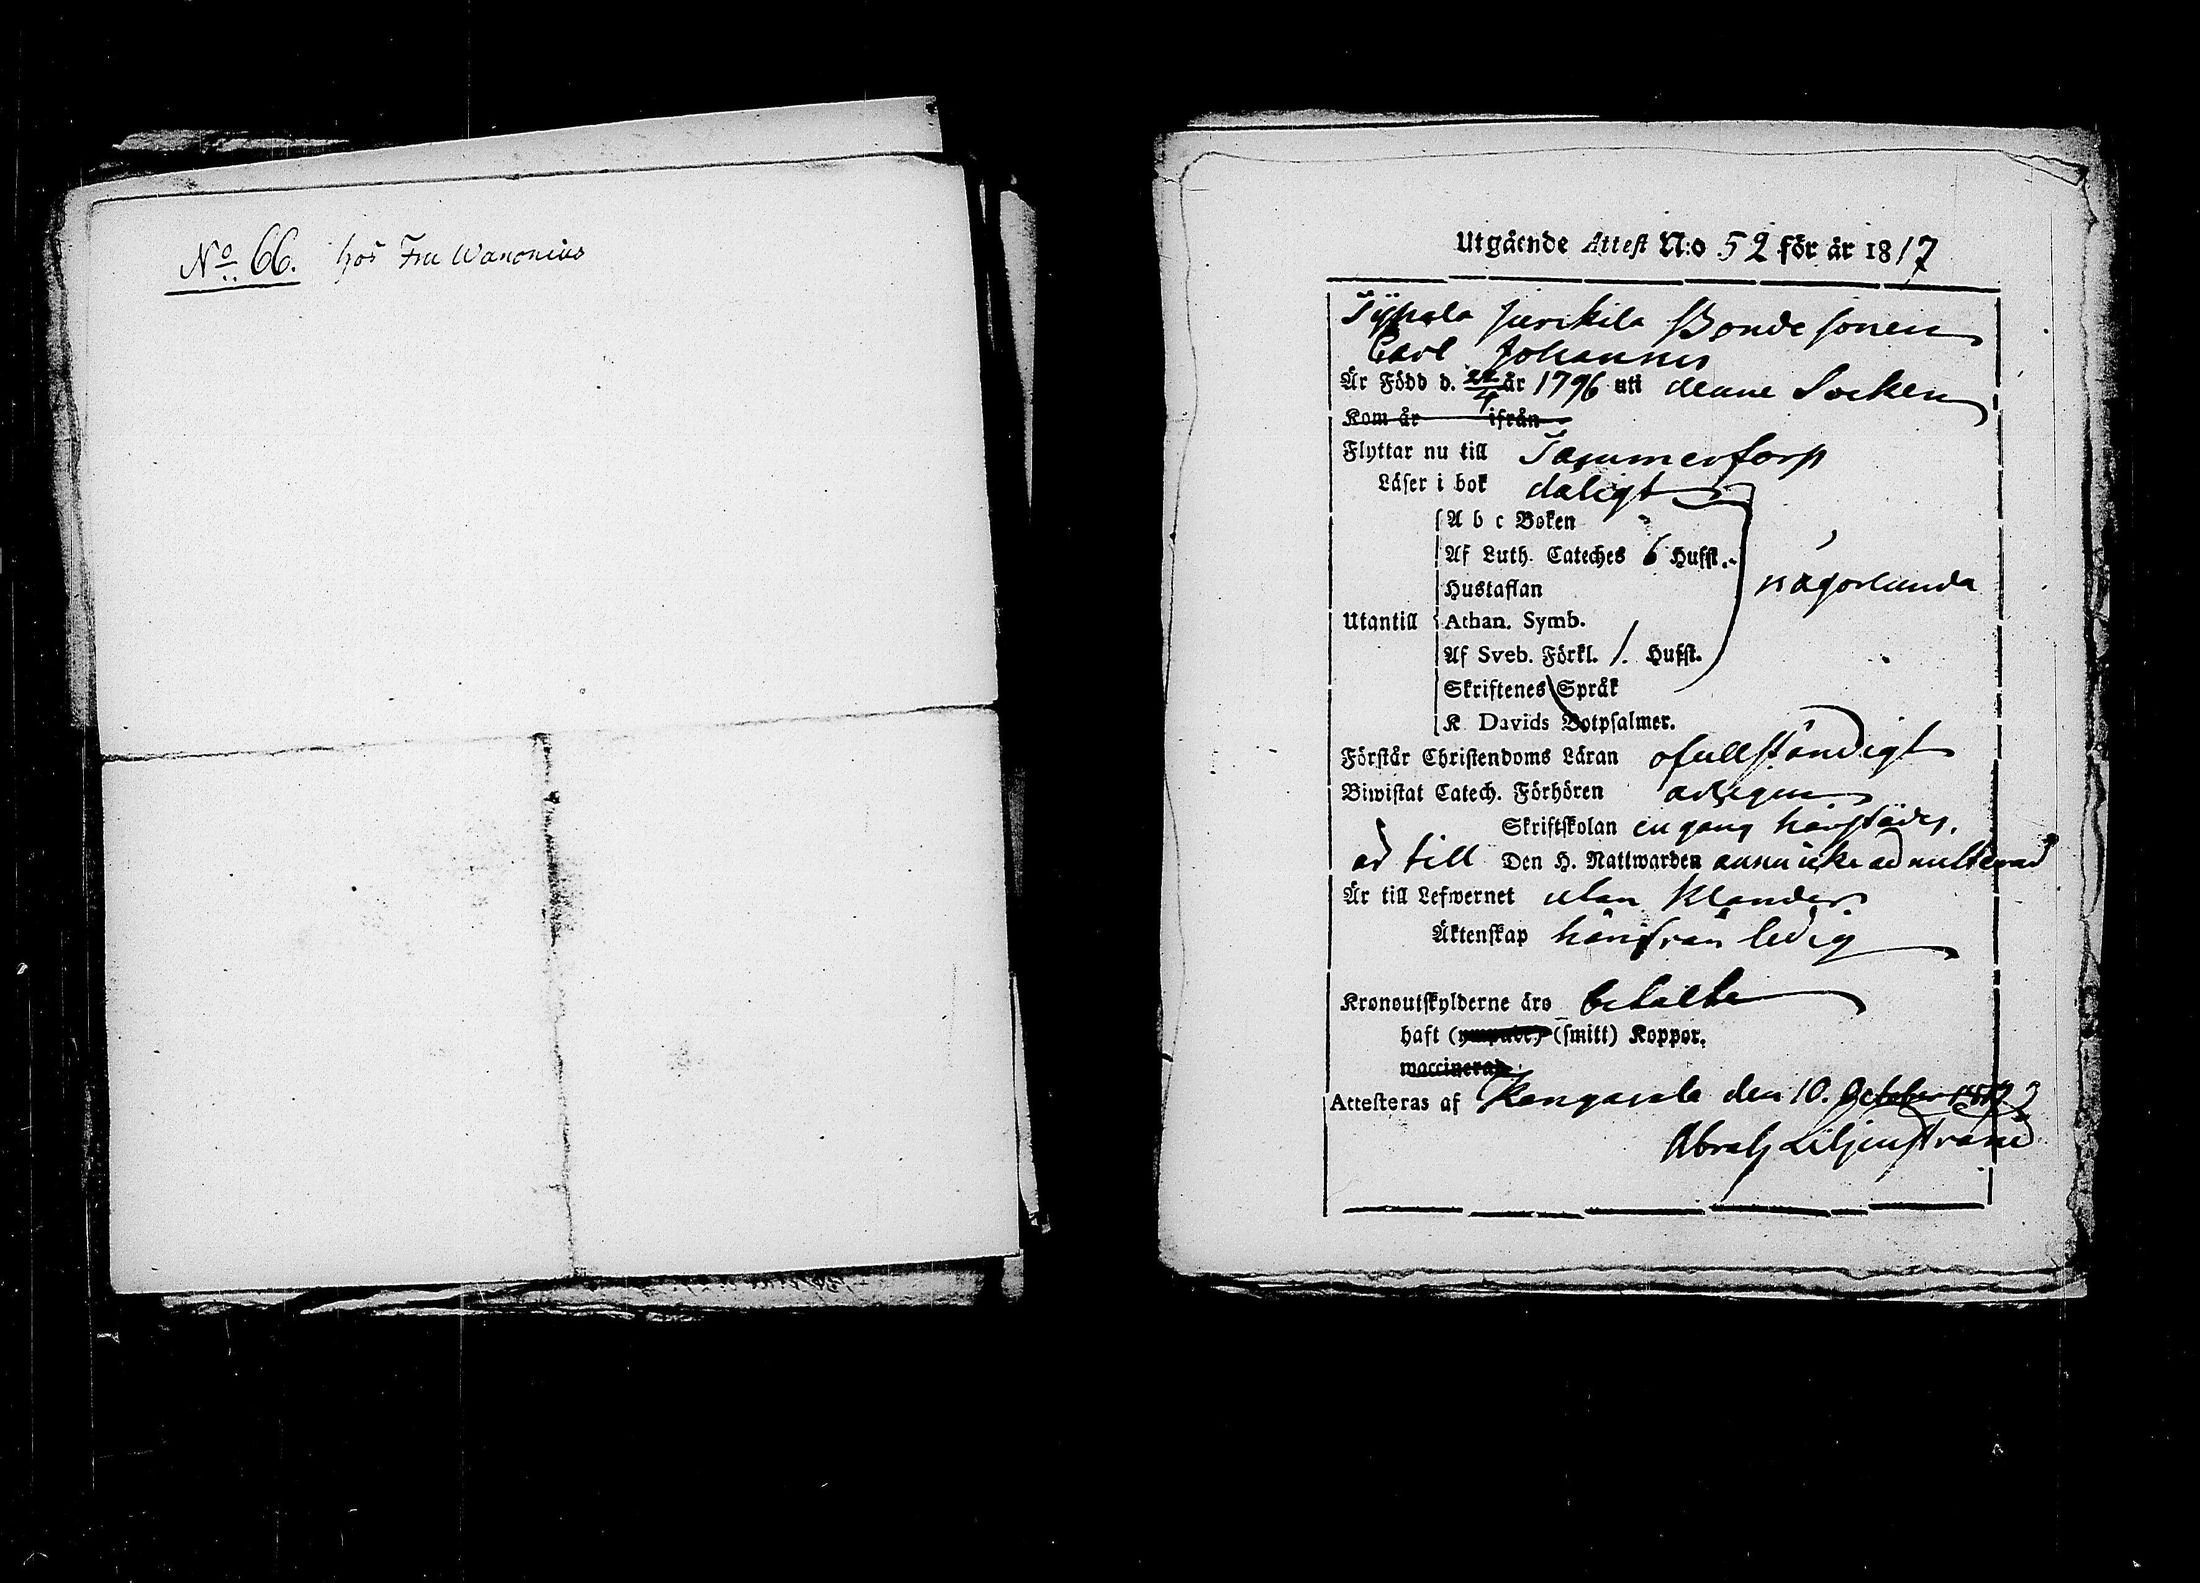 No 66. hos Fru Wanonius
Utgående Attest N:o 52 för år 1817
Juvekila Bonde sonen
Carl Johannes
Är Född d. 22/4 år 1796 uti denne Socken
Kom år ifrån
Flyttar nu till Tammerfors
Läser i bok dåligt
A b c Boken
Af Luth. Cateches 6 Hufst.
Hustaflan
någorlunda
Utantill Athan. Symb.
Af Sveb. Förkl. 1. Hufst.
Skriftenes Språk
K Davids Botpsalmer.
Förstår Christendoms Läran ofullständigt
Biwistat Catech. Förhören
Skriftskolan en gång härstädes.
Den H. Nattwarden ännu icke admitterad
Är till Lefwernet utan klander
Äktenskap härifrån ledig
Kronoutskylderne äro betalte
haft (smitt) Koppor.
waccinerad
Attesteras af Kangasala den 10. October 1817
Abrah Liljenstrand